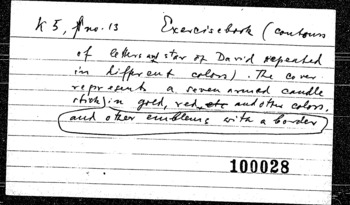 K 5, no. 13 Exercisebook (contours
of letters and star of David repeated
in different colors). The cover
represents a seven armed candle
stick in gold, red, and other colors.
and other emblems with a border
100028